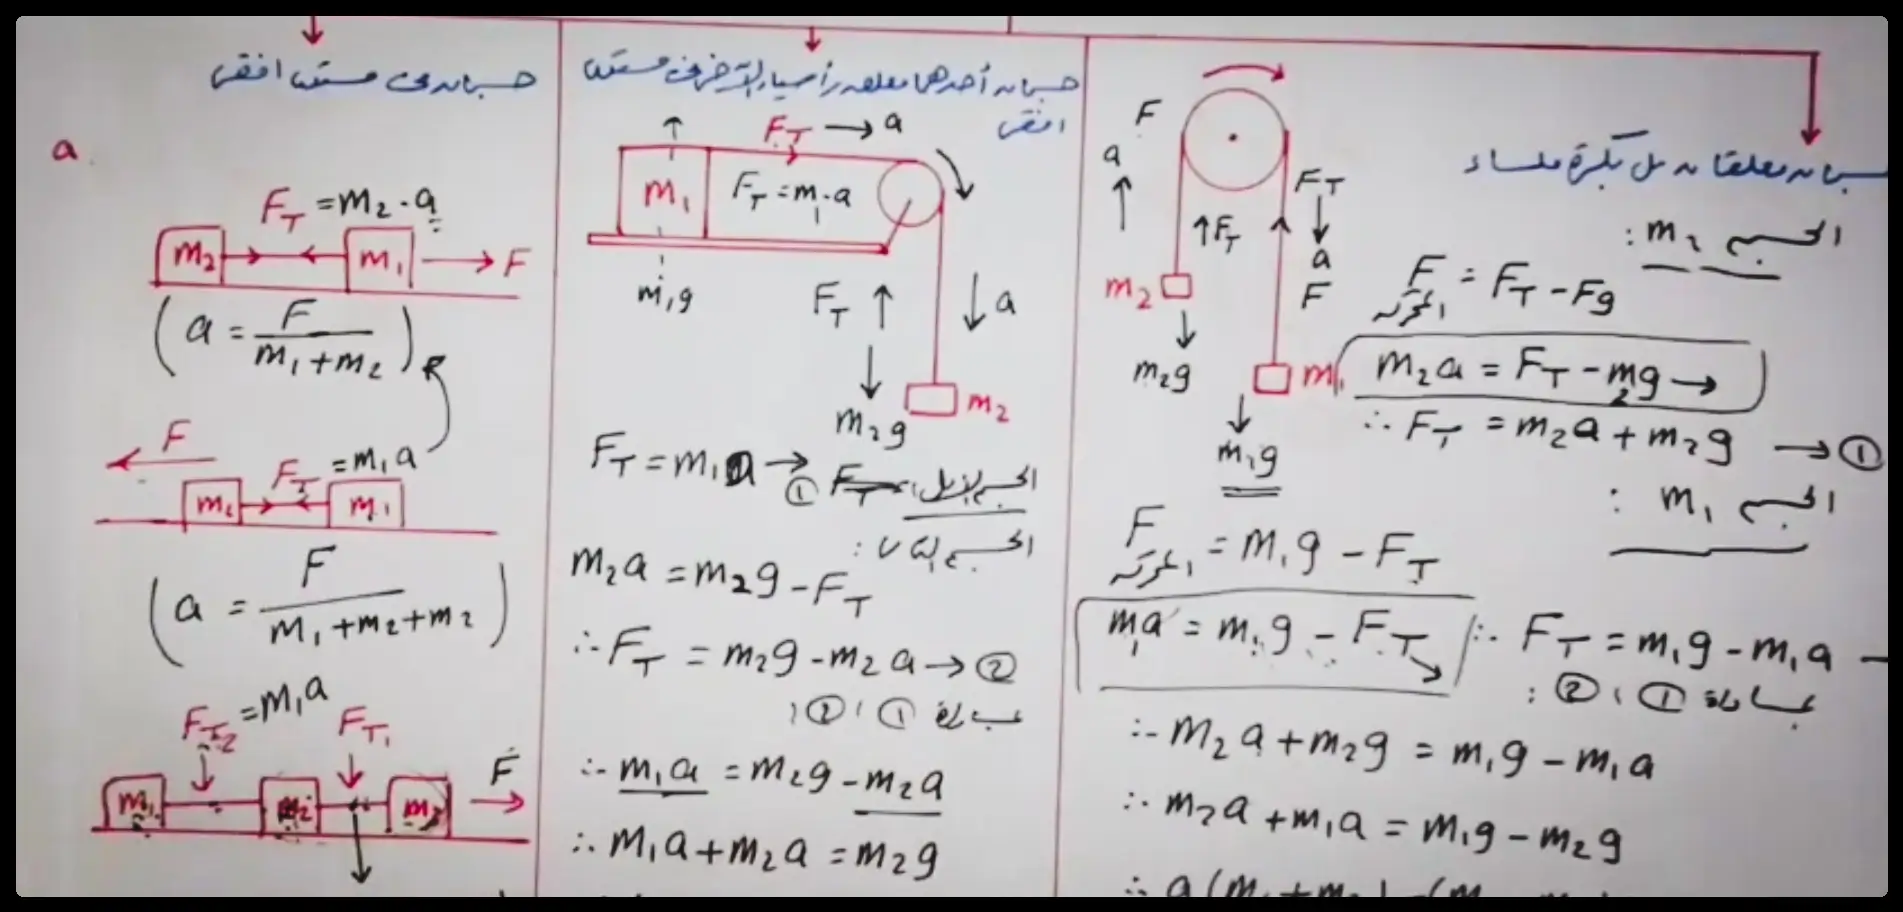 جسمان على مستوى افقى
a
F_T = m₂ . a
m₂ m₁ F
(a = F / (m₁ + m₂))
F
F_T = m₁a
m₂ m₁
(a = F / (m₁ + m₂ + m₂))
F_T₂ = m₁a F_T₁
m₁ m₂ m₃ F
جسمان أحدهما معلق رأسيا والآخر فى مستوى
افقى
F_T → a
m₁ F_T = m₁ . a
m₁g F_T ↑ ↓ a
m₂
m₂g
F_T = m₁a → ①
الجسم الأول:
الجسم الثانى:
m₂a = m₂g - F_T
∴ F_T = m₂g - m₂a → ②
بمساواة ①، ②:
∴ m₁a = m₂g - m₂a
∴ m₁a + m₂a = m₂g
جسمان معلقان من بكرة ملساء
F
a
F_T
↑F_T
a
F
m₂
m₂g
m₁
m₁g
الجسم m₂:
F المحركة = F_T - Fg
m₂a = F_T - m₂g →
∴ F_T = m₂a + m₂g → ①
الجسم m₁:
F المحركة = m₁g - F_T
m₁a = m₁g - F_T
∴ F_T = m₁g - m₁a -
بمساواة ①، ②:
∴ m₂a + m₂g = m₁g - m₁a
∴ m₂a + m₁a = m₁g - m₂g